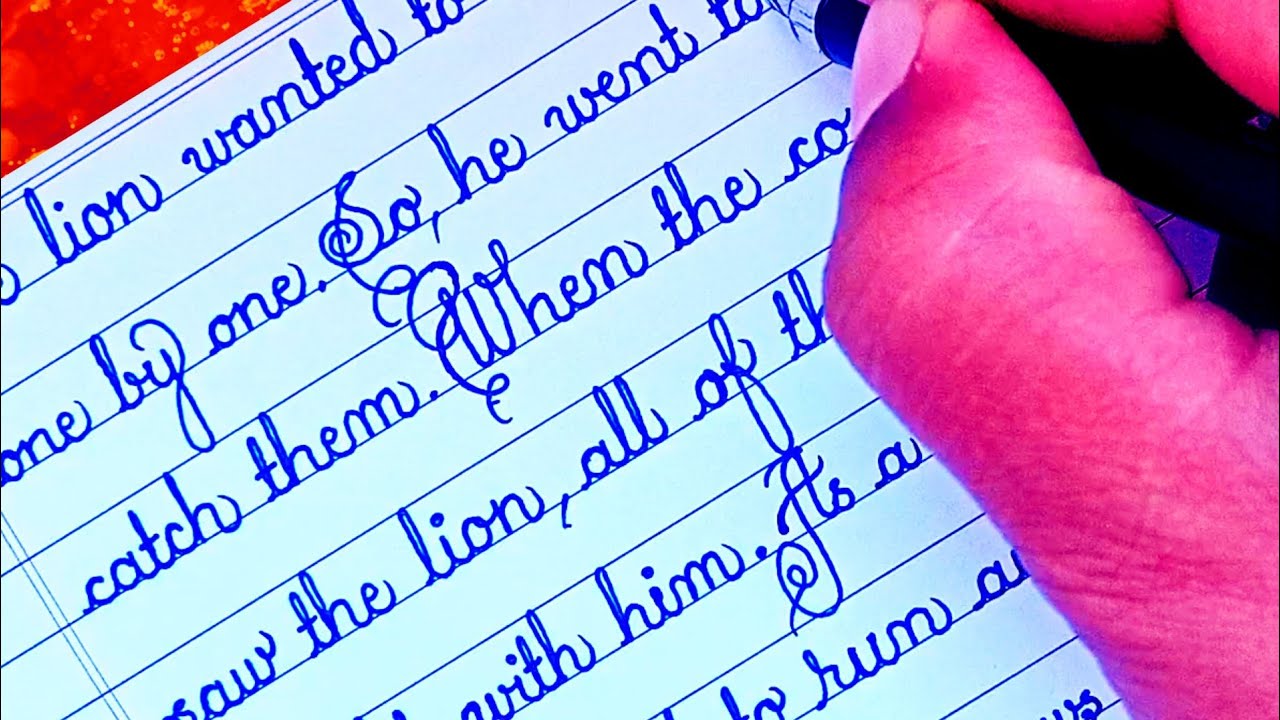 lion wanted to
one by one. So, he went to
catch them. When the co
saw the lion, all of th
with him. As a
to run a
ws